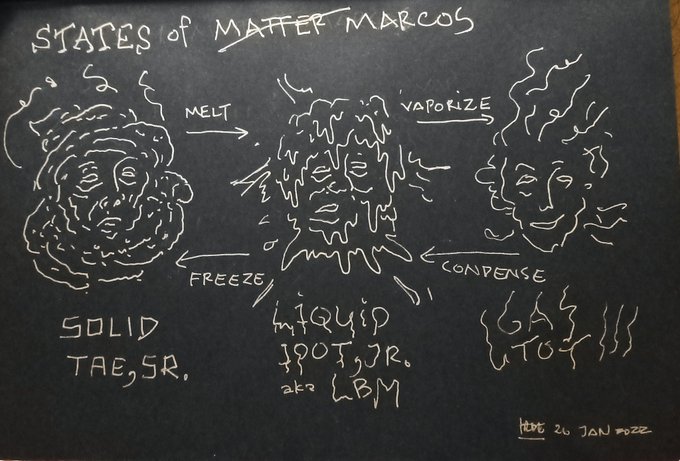 STATES of MATTER MARCOS
MELT
VAPORIZE
FREEZE
CONDENSE
SOLID
TAE, SR.
LIQUID
IPOT, JR.
aka LBM
GAS
UTOT
26 JAN 2022